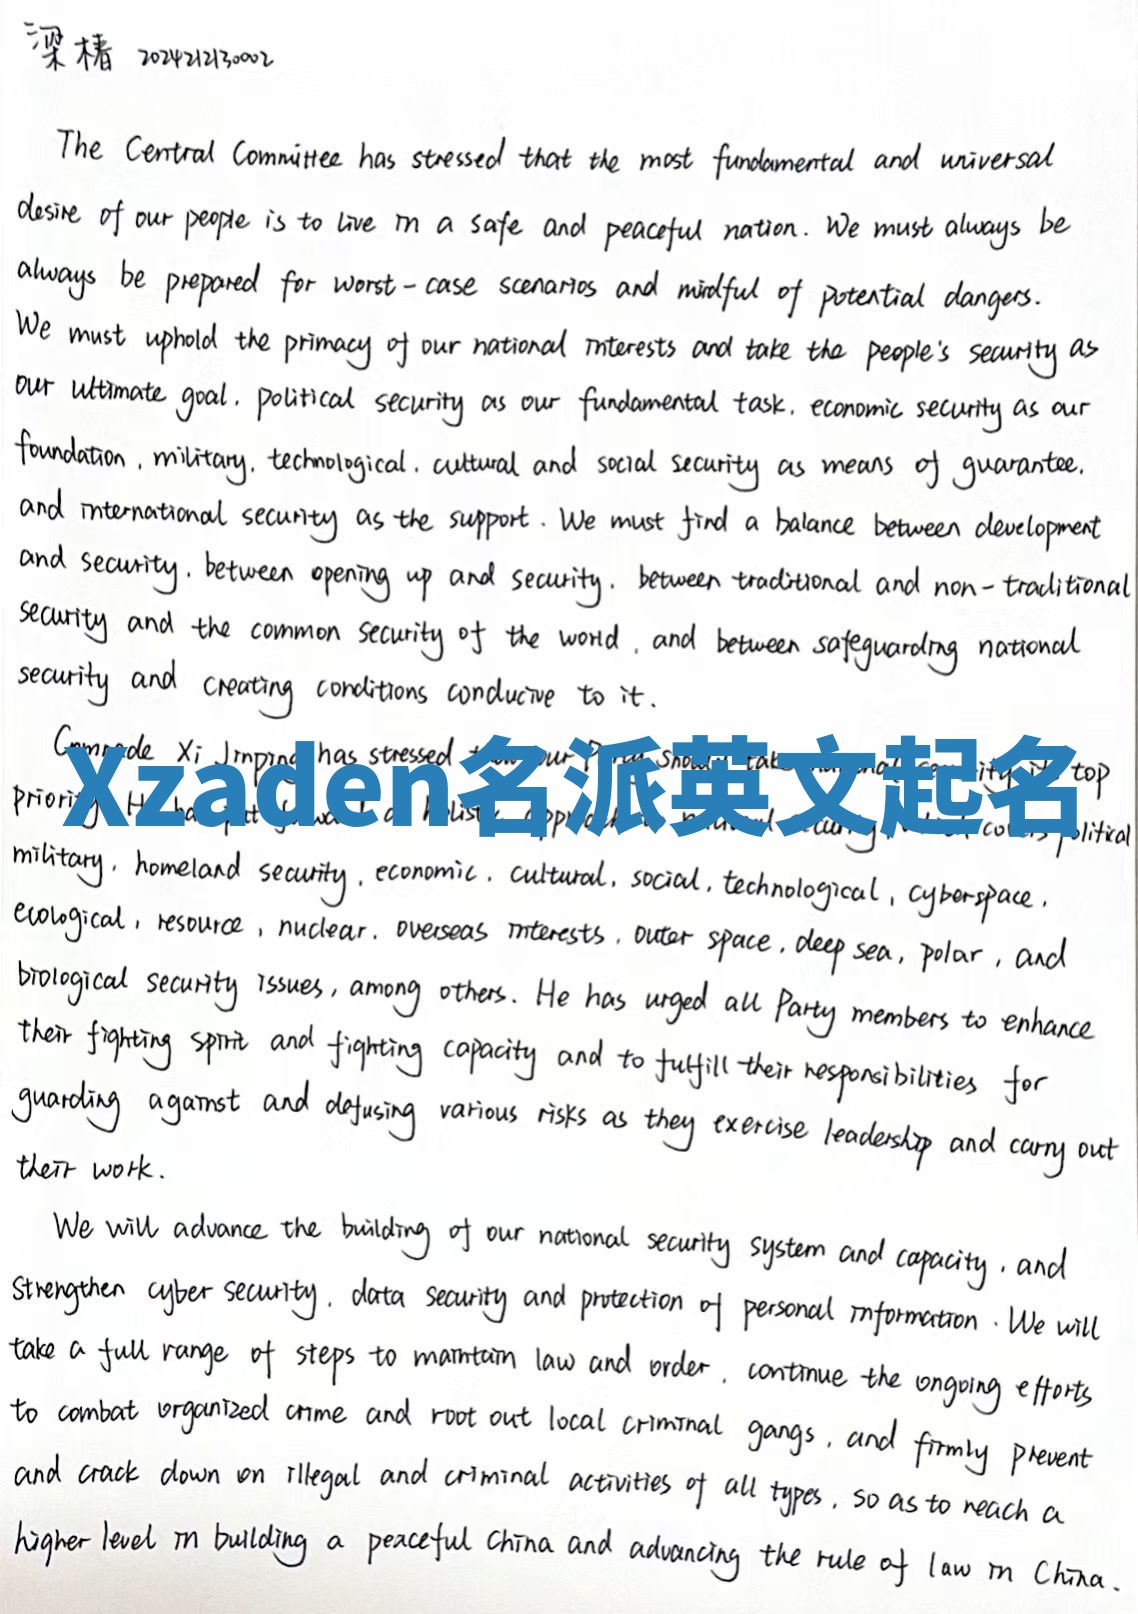 梁椿 2024212130002
The Central Committee has stressed that the most fundamental and universal
desire of our people is to live in a safe and peaceful nation. We must always be
always be prepared for worst-case scenarios and mindful of potential dangers.
We must uphold the primacy of our national interests and take the people's security as
our ultimate goal, political security as our fundamental task, economic security as our
foundation, military, technological, cultural and social security as means of guarantee,
and international security as the support. We must find a balance between development
and security, between opening up and security, between traditional and non-traditional
security and the common security of the world, and between safeguarding national
security and creating conditions conducive to it.
Comrade Xi Jinping has stressed our top
Xzaden名派英文起名
priority. political
military, homeland security, economic, cultural, social, technological, cyberspace,
ecological, resource, nuclear, overseas interests, outer space, deep sea, polar, and
biological security issues, among others. He has urged all Party members to enhance
their fighting spirit and fighting capacity and to fulfill their responsibilities for
guarding against and defusing various risks as they exercise leadership and carry out
their work.
We will advance the building of our national security system and capacity, and
strengthen cyber security, data security and protection of personal information. We will
take a full range of steps to maintain law and order, continue the ongoing efforts
to combat organized crime and root out local criminal gangs, and firmly prevent
and crack down on illegal and criminal activities of all types, so as to reach a
higher level in building a peaceful China and advancing the rule of law in China.